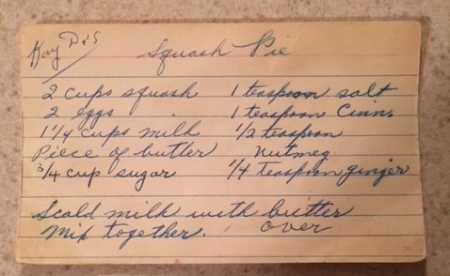 Kay D's
Squash Pie
2 cups squash
2 eggs
1 1/4 cups milk
Piece of butter
3/4 cup sugar
1 teaspoon salt
1 teaspoon Cinn.
1/2 teaspoon
nutmeg
1/4 teaspoon ginger
Scald milk with butter
Mix together.
over